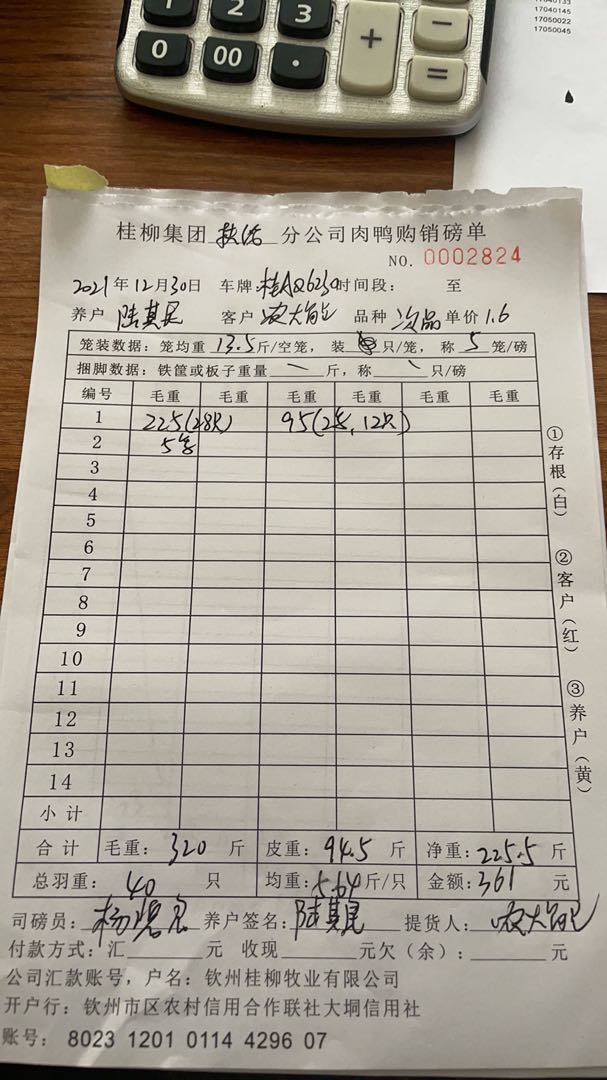 17040145
17050022
17050045
1 2 3 + −
0 00 · =
桂柳集团 扶活 分公司肉鸭购销磅单
NO. 0002824
2021年12月30日 车牌:桂AQ6230时间段: 至
养户 陆其昆 客户 农大能 品种 次品 单价1.6
笼装数据:笼均重 13.5斤/空笼,装 只/笼,称 5 笼/磅
捆脚数据:铁筐或板子重量 一 斤,称 、 只/磅
编号 毛重 毛重 毛重 毛重 毛重 毛重
1 225(28只) 95(2笼,12只)
2 5笼
3
4
5
6
7
8
9
10
11
12
13
14
小计
合计 毛重:320 斤 皮重:94.5 斤 净重:225.5 斤
总羽重: 40 只 均重:5.64斤/只 金额:361 元
司磅员:杨 养户签名:陆其昆 提货人:农大能
付款方式:汇 元 收现 元欠(余): 元
公司汇款账号,户名:钦州桂柳牧业有限公司
开户行:钦州市区农村信用合作联社大垌信用社
账号:8023 1201 0114 4296 07
①存根(白)
②客户(红)
③养户(黄)